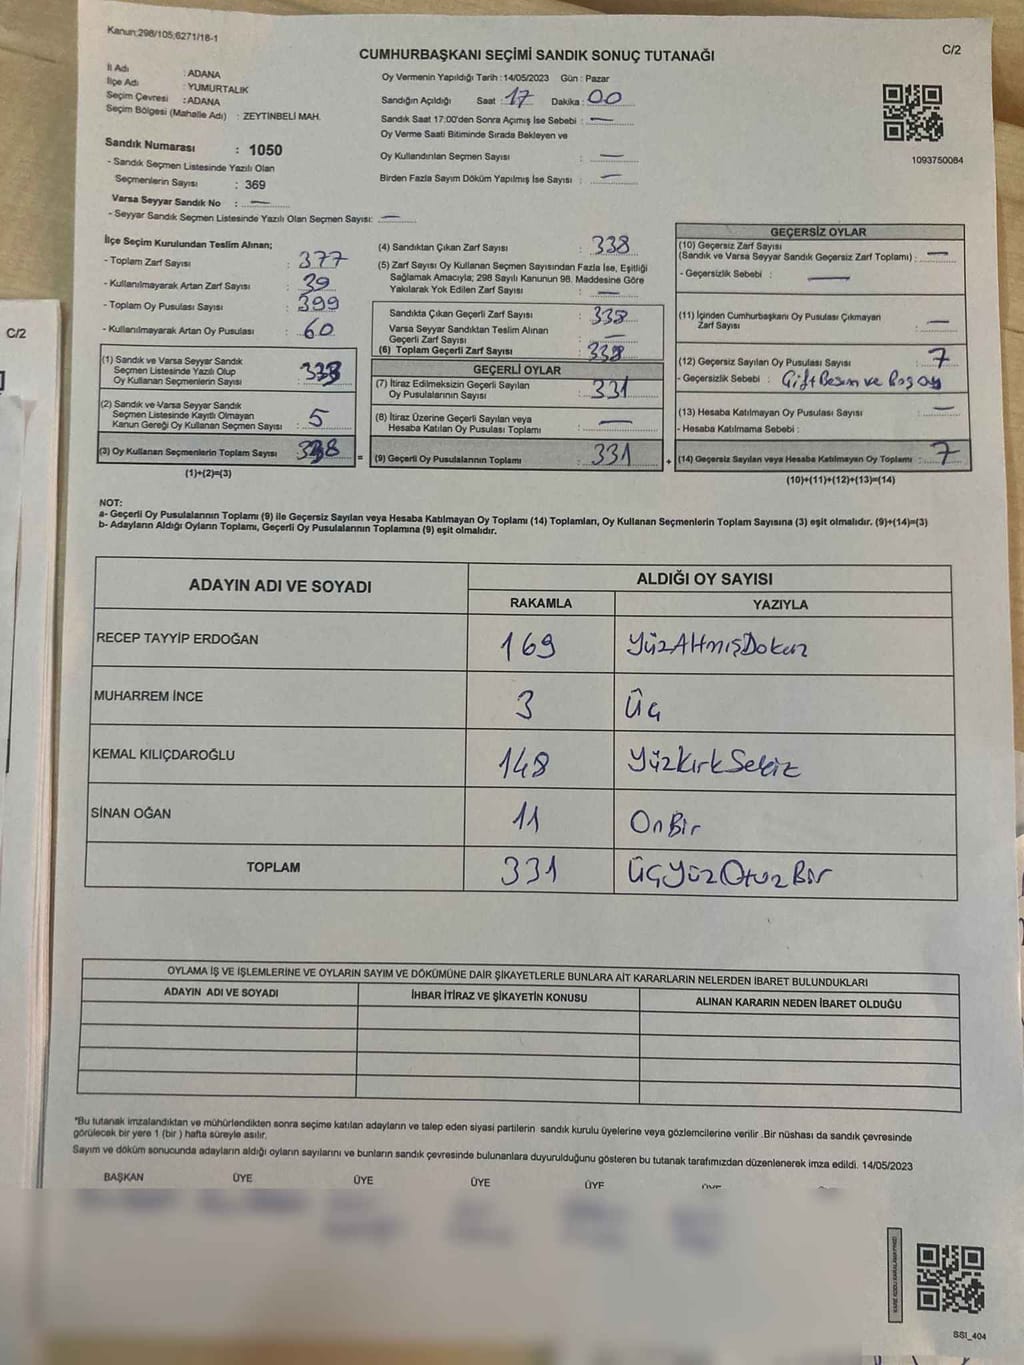 Kanun:298/105,6271/18-1
C/2
CUMHURBAŞKANI SEÇİMİ SANDIK SONUÇ TUTANAĞI
İl Adı : ADANA
İlçe Adı : YUMURTALIK
Seçim Çevresi : ADANA
Seçim Bölgesi (Mahalle Adı) : ZEYTİNBELİ MAH.
Sandık Numarası : 1050
- Sandık Seçmen Listesinde Yazılı Olan
Seçmenlerin Sayısı : 369
Varsa Seyyar Sandık No : —
- Seyyar Sandık Seçmen Listesinde Yazılı Olan Seçmen Sayısı: —
Oy Vermenin Yapıldığı Tarih : 14/05/2023 Gün : Pazar
Sandığın Açıldığı Saat : 17 Dakika : 00
Sandık Saat 17:00'den Sonra Açımış İse Sebebi : —
Oy Verme Saati Bitiminde Sırada Bekleyen ve
Oy Kullandırılan Seçmen Sayısı : —
Birden Fazla Sayım Döküm Yapılmış İse Sayısı : —
1093750084
İlçe Seçim Kurulundan Teslim Alınan;
- Toplam Zarf Sayısı : 377
- Kullanılmayarak Artan Zarf Sayısı : 39
- Toplam Oy Pusulası Sayısı : 399
- Kullanılmayarak Artan Oy Pusulası : 60
(1) Sandık ve Varsa Seyyar Sandık
Seçmen Listesinde Yazılı Olup
Oy Kullanan Seçmenlerin Sayısı :
(2) Sandık ve Varsa Seyyar Sandık
Seçmen Listesinde Kayıtlı Olmayan
Kanun Gereği Oy Kullanan Seçmen Sayısı : 5
(3) Oy Kullanan Seçmenlerin Toplam Sayısı : 338
(1)+(2)=(3)
=
(4) Sandıktan Çıkan Zarf Sayısı : 338
(5) Zarf Sayısı Oy Kullanan Seçmen Sayısından Fazla İse, Eşitliği
Sağlamak Amacıyla; 298 Sayılı Kanunun 98. Maddesine Göre
Yakılarak Yok Edilen Zarf Sayısı : —
Sandıkta Çıkan Geçerli Zarf Sayısı : 338
Varsa Seyyar Sandıktan Teslim Alınan
Geçerli Zarf Sayısı : —
(6) Toplam Geçerli Zarf Sayısı : 338
GEÇERLİ OYLAR
(7) İtiraz Edilmeksizin Geçerli Sayılan
Oy Pusulalarının Sayısı : 331
(8) İtiraz Üzerine Geçerli Sayılan veya
Hesaba Katılan Oy Pusulası Toplamı : —
(9) Geçerli Oy Pusulalarının Toplamı : 331
+
GEÇERSİZ OYLAR
(10) Geçersiz Zarf Sayısı
(Sandık ve Varsa Seyyar Sandık Geçersiz Zarf Toplamı) : —
- Geçersizlik Sebebi : —
(11) İçinden Cumhurbaşkanı Oy Pusulası Çıkmayan
Zarf Sayısı : —
(12) Geçersiz Sayılan Oy Pusulası Sayısı : 7
- Geçersizlik Sebebi : Çift Basım ve Boş oy
(13) Hesaba Katılmayan Oy Pusulası Sayısı : —
- Hesaba Katılmama Sebebi :
(14) Geçersiz Sayılan veya Hesaba Katılmayan Oy Toplamı : 7
(10)+(11)+(12)+(13)=(14)
NOT:
a- Geçerli Oy Pusulalarının Toplamı (9) ile Geçersiz Sayılan veya Hesaba Katılmayan Oy Toplamı (14) Toplamları, Oy Kullanan Seçmenlerin Toplam Sayısına (3) eşit olmalıdır. (9)+(14)=(3)
b- Adayların Aldığı Oyların Toplamı, Geçerli Oy Pusulalarının Toplamına (9) eşit olmalıdır.
ADAYIN ADI VE SOYADI
ALDIĞI OY SAYISI
RAKAMLA YAZIYLA
RECEP TAYYİP ERDOĞAN 169 YüzAltmışDokuz
MUHARREM İNCE 3 Üç
KEMAL KILIÇDAROĞLU 148 YüzKırkSekiz
SİNAN OĞAN 11 OnBir
TOPLAM 331 ÜçYüzOtuzBir
OYLAMA İŞ VE İŞLEMLERİNE VE OYLARIN SAYIM VE DÖKÜMÜNE DAİR ŞİKAYETLERLE BUNLARA AİT KARARLARIN NELERDEN İBARET BULUNDUKLARI
ADAYIN ADI VE SOYADI İHBAR İTİRAZ VE ŞİKAYETİN KONUSU ALINAN KARARIN NEDEN İBARET OLDUĞU
*Bu tutanak imzalandıktan ve mühürlendikten sonra seçime katılan adayların ve talep eden siyasi partilerin sandık kurulu üyelerine veya gözlemcilerine verilir .Bir nüshası da sandık çevresinde
görülecek bir yere 1 (bir ) hafta süreyle asılır.
Sayım ve döküm sonucunda adayların aldığı oyların sayılarını ve bunların sandık çevresinde bulunanlara duyurulduğunu gösteren bu tutanak tarafımızdan düzenlenerek imza edildi. 14/05/2023
BAŞKAN ÜYE ÜYE ÜYE ÜYE
SSI_404
C/2